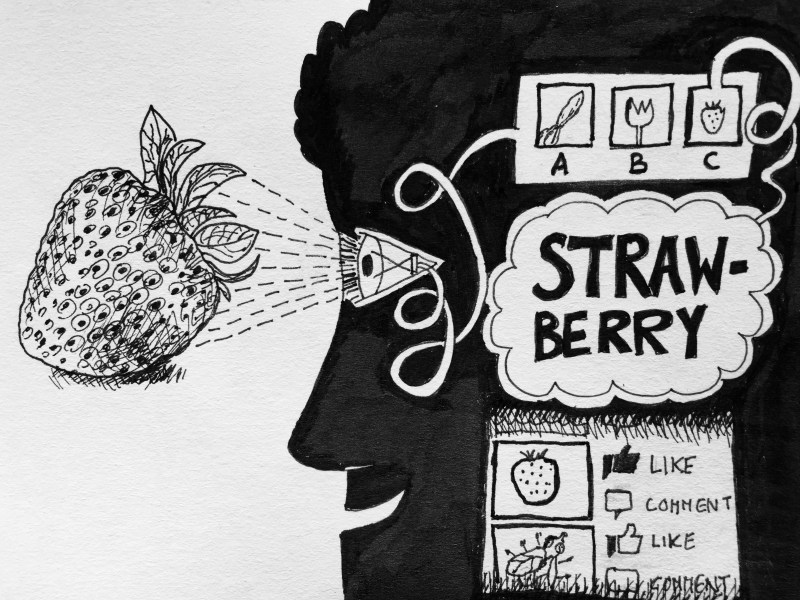 A B C
STRAW-
BERRY
LIKE
COMMENT
LIKE
COMMENT